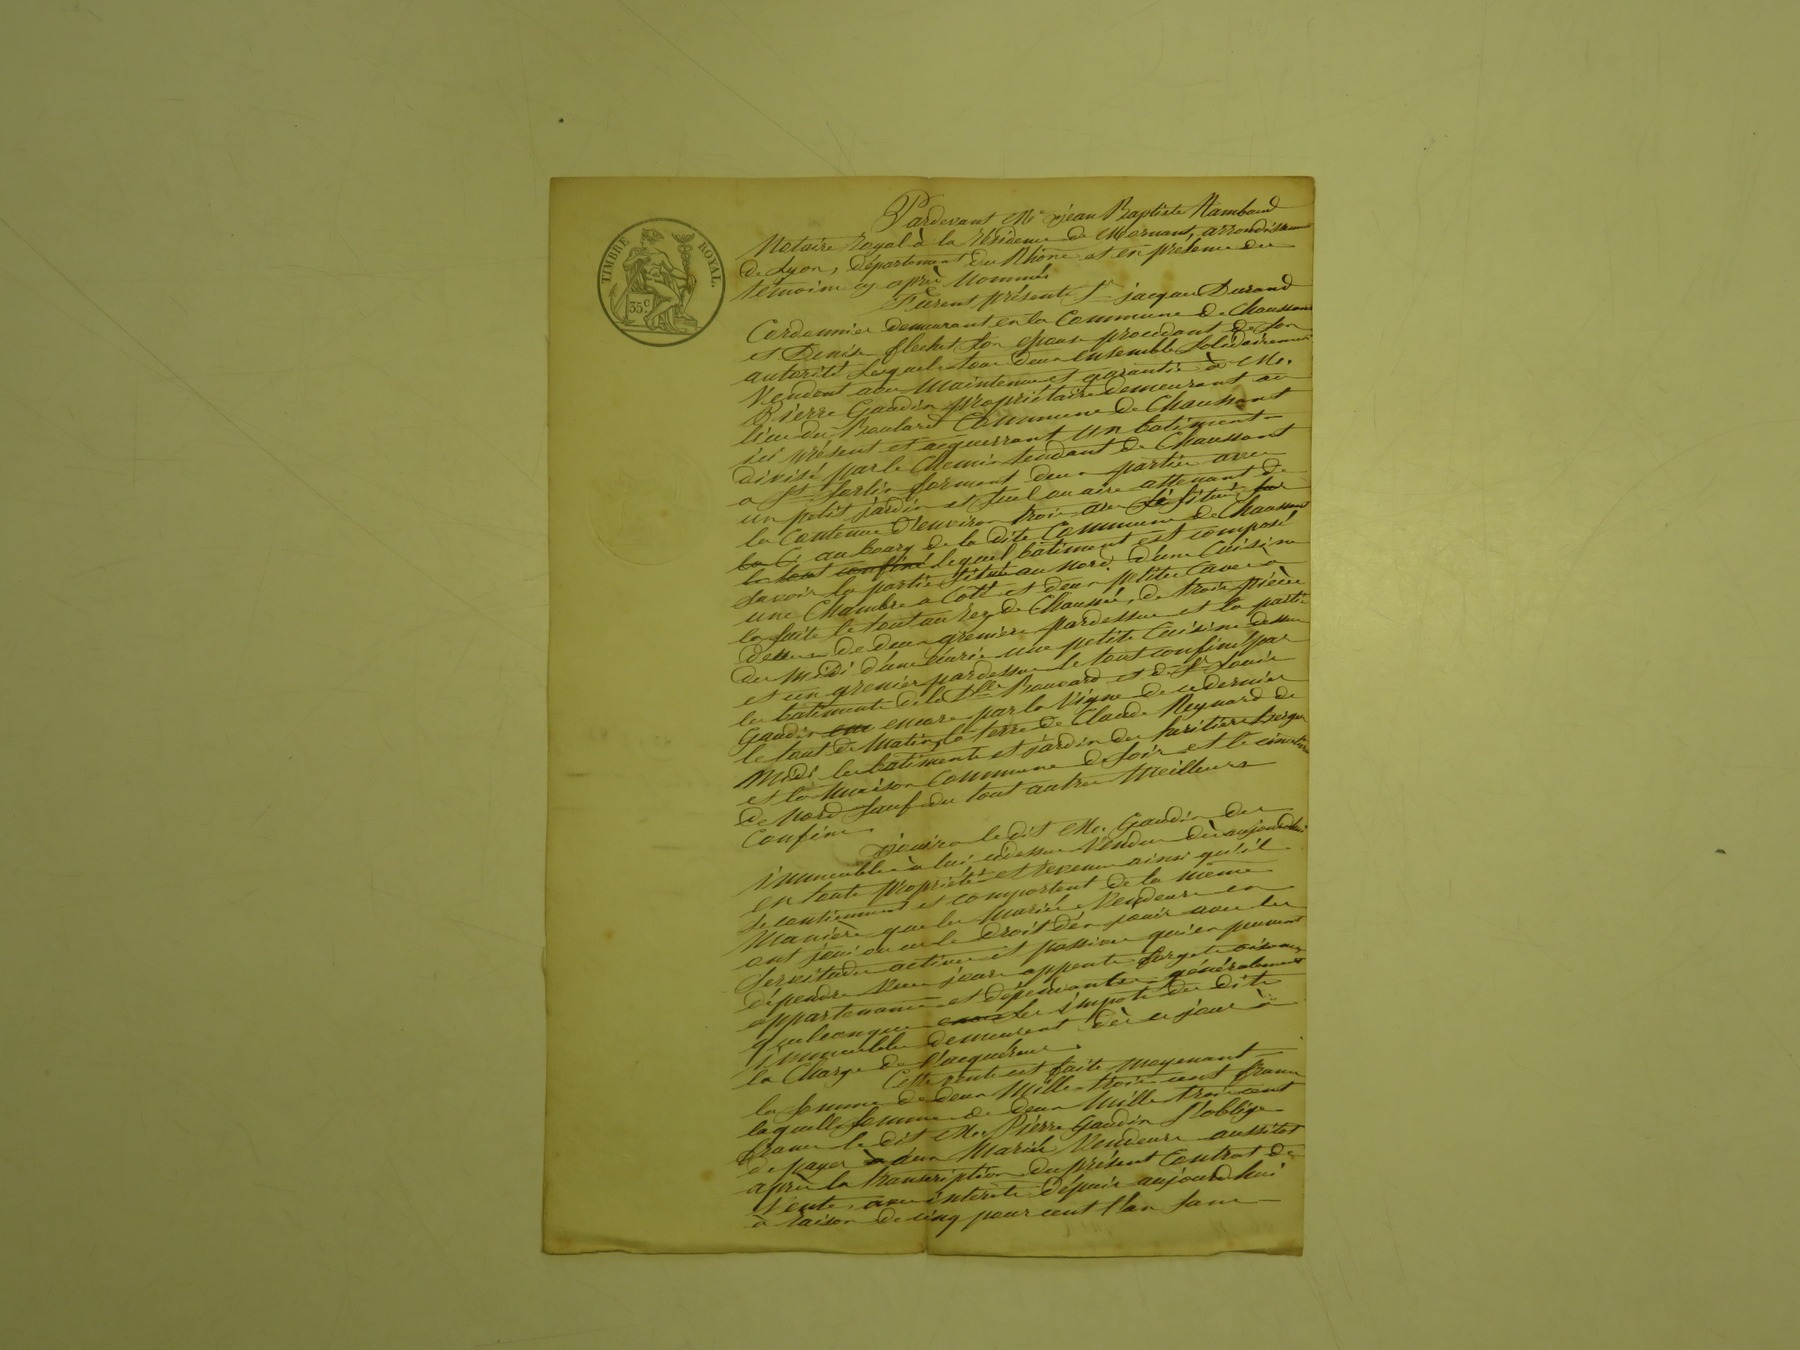 TIMBRE ROYAL.
35 c.
Pardevant Me jean Baptiste Rambaud
Notaire royal à la résidence de Mornant, arrondissement
de Lyon, département du Rhône et en présence des
témoins cy après Nommés
Furent présents Sr jacques Durand
Cordonnier demeurant en la Commune de Chaussant
et Denise flechet Son epouse procédant de Son
autorité lesquels tous deux ensemble Solidairement
Vendent avec Maintenue et garantie à Mr.
Pierre Gaudin propriétaire demeurant au
lieu du Boulard Commune de Chaussant
ici présent et acquerrant un batiment
divisé par le Chemin tendant de Chaussant
a St Sorlin formant deux parties avec
un petit jardin et Suel ou aire attenant de
la Contenue d'environ trois ares Situé
au bourg de la dite Commune de Chaussant
le tout confiné lequel batiment est composé
Savoir la partie Située au nord d'une Cuisine
une Chambre a Coté et deux petites Caves a
la Suite le tout au rez de Chaussée, de trois pièces
dessus de deux greniers pardessus et la partie
du Midi d'une écurie une petite Cuisine dessus
et un grenier pardessus le tout confiné par
les batiments de la Dlle Bouvard et de Sr Louis
Gaudin encore par la Vigne de ce dernier
le tout de Matin, la terre de Claude Reynard de
Midi les batiments et jardin des héritiers Berger
et la Maison Commune de Soir et le cimetière
de Nord Sauf du tout autres Meilleurs
Confins.
jouira le dit Mr. Gaudin des
immeubles à lui cidessus Vendus dès aujourd'hui
en toute propriété et revenu ainsi qu'ils
Se contiennent et comportent de la même
Manière que les Mariés Vendeurs en
ont joui ou eu le droit d'en jouir avec les
Servitudes actives et passives qui en peuvent
dépendre Vues jours appents forgets aisances
appartenances et dépendances généralement
quelconques les impots des dits
immeubles demeurent dès ce jour à
la Charge de l'acquéreur.
Cette vente est faite moyenant
la Somme de deux Mille trois cent francs
laquelle Somme de deux Mille trois cent
francs le dit Mr. Pierre Gaudin S'oblige
de payer aux Mariés Vendeurs aussitot
après la transcription du présent Contrat de
Vente, avec intérêts depuis aujourd'hui
à raison de cinq pour cent l'an Sans